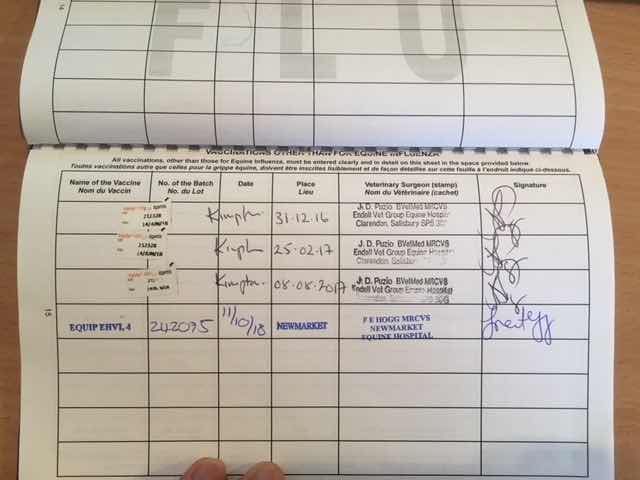 14
FLU
VACCINATIONS OTHER THAN FOR EQUINE INFLUENZA
All vaccinations, other than those for Equine Influenza, must be entered clearly and in detail on this sheet in the space provided below.
Toutes vaccinations autre que celles pour la grippe équine, doivent être inscrites lisiblement et de façon détaillées sur cette feuille à l'endroit indique ci-dessous.
Name of the Vaccine No. of the Batch Date Place Veterinary Surgeon (stamp) Signature
Nom du Vaccin No. du Lot Lieu Nom du Vétérinaire (cachet)
252328 Kimpton 31.12.16 J. D. Puzio BVetMed MRCVS
14/JUN/18 Endell Vet Group Equine Hospital
Clarendon, Salisbury SP5 3D
252328 Kimpton 25.02.17 J. D. Puzio BVetMed MRCVS
14/JUN/18 Endell Vet Group Equine Hospital
Clarendon, Salisbury
Kimpton 08.08.2017 J. D. Puzio BVetMed MRCVS
Endell Vet Group Equine Hospital
Clarendon, Salisbury SP5 3DG
15
EQUIP EHV1, 4 242075 11/10/18 NEWMARKET F E HOGG MRCVS
NEWMARKET
EQUINE HOSPITAL